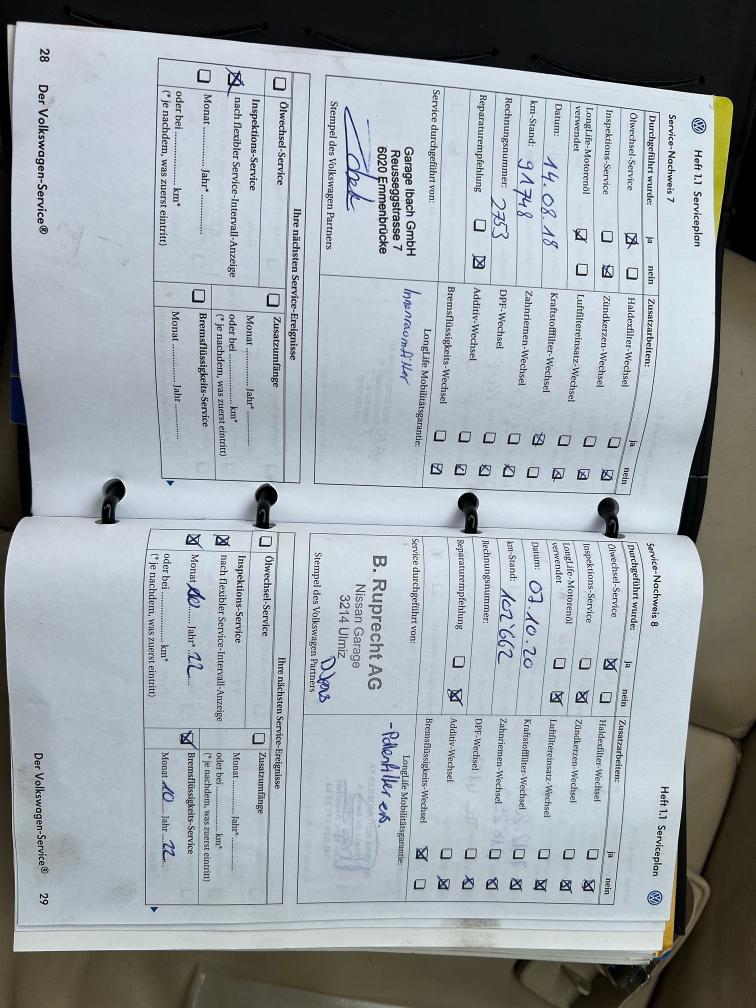 Heft 1.1 Serviceplan
Service-Nachweis 7
Durchgeführt wurde: ja nein
Ölwechsel-Service
Inspektions-Service
LongLife-Motorenöl
verwendet
Datum: 14.08.18
km-Stand: 91748
Rechnungsnummer: 2753
Reparaturempfehlung
Service durchgeführt von:
Garage Ibach GmbH
Reusseggstrasse 7
6020 Emmenbrücke
Stempel des Volkswagen Partners
Zusatzarbeiten: ja nein
Haldexfilter-Wechsel
Zündkerzen-Wechsel
Luftfiltereinsatz-Wechsel
Kraftstofffilter-Wechsel
Zahnriemen-Wechsel
DPF-Wechsel
Additiv-Wechsel
Bremsflüssigkeits-Wechsel
LongLife Mobilitätsgarantie:
Innenraumfilter
Ihre nächsten Service-Ereignisse
Ölwechsel-Service
Inspektions-Service
nach flexibler Service-Intervall-Anzeige
Monat ............ Jahr* ............
oder bei ............ km*
(* je nachdem, was zuerst eintritt)
Zusatzumfänge
Monat ............ Jahr* ............
oder bei ............ km*
(* je nachdem, was zuerst eintritt)
Bremsflüssigkeits-Service
Monat ............ Jahr ............
28 Der Volkswagen-Service®
Heft 1.1 Serviceplan
Service-Nachweis 8
Durchgeführt wurde: ja nein
Ölwechsel-Service
Inspektions-Service
LongLife-Motorenöl
verwendet
Datum: 07.10.20
km-Stand: 102'662
Rechnungsnummer:
Reparaturempfehlung
Service durchgeführt von:
B. Ruprecht AG
Nissan Garage
3214 Ulmiz
Stempel des Volkswagen Partners
Zusatzarbeiten: ja nein
Haldexfilter-Wechsel
Zündkerzen-Wechsel
Luftfiltereinsatz-Wechsel
Kraftstofffilter-Wechsel
Zahnriemen-Wechsel
DPF-Wechsel
Additiv-Wechsel
Bremsflüssigkeits-Wechsel
LongLife Mobilitätsgarantie:
- Pollenfilter ers.
Ihre nächsten Service-Ereignisse
Ölwechsel-Service
Inspektions-Service
nach flexibler Service-Intervall-Anzeige
Monat 10 Jahr* 22
oder bei ............ km*
(* je nachdem, was zuerst eintritt)
Zusatzumfänge
Monat ............ Jahr* ............
oder bei ............ km*
(* je nachdem, was zuerst eintritt)
Bremsflüssigkeits-Service
Monat 10 Jahr 22
Der Volkswagen-Service® 29